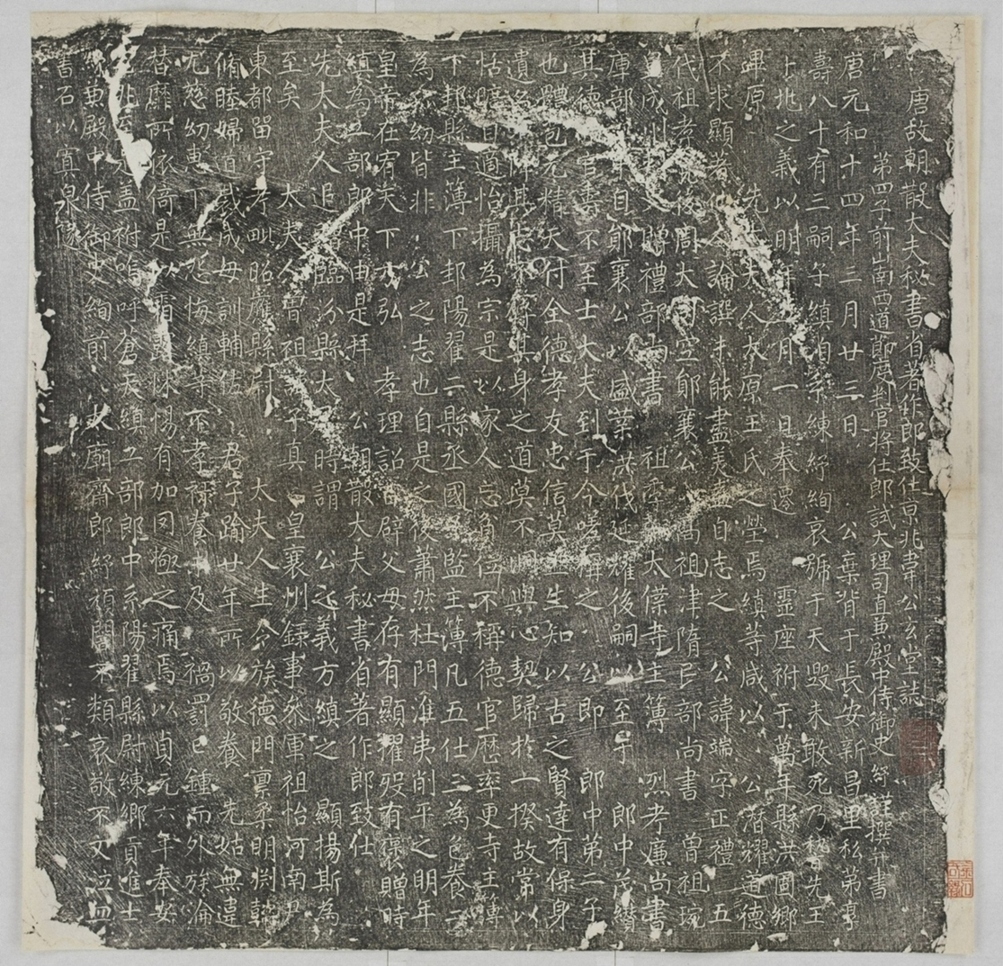 唐故朝散大夫秘書省著作郎致仕京兆韋公玄堂誌
第四子前山南西道節度判官將仕郎試大理司直兼殿中侍御史紓謹撰并書
唐元和十四年三月廿三日公棄背于長安新昌里私第享
壽八十有三嗣子縝頊系練紓絢哀號于天毀未敢死乃稽先王
卜兆之義以明年二月一日奉遷靈座祔于萬年縣洪固鄉
畢原先夫人太原王氏之塋焉縝等咸以公潛耀道德
不求顯著他人論譔未能盡美遂自志之公諱端字正禮五
代祖孝寬周大司空鄖襄公高祖津隋民部尚書曾祖琬
成州刺史贈禮部尚書祖太僕寺主簿烈考廉尚書
庫部郎中自鄖襄公以盛業代延耀後嗣以至于郎中茂績
其德而官壽不至士大夫到于今嗟稱之公即郎中第二子
也體包元精天付全德孝友忠信莫生知以古之賢達有保身
遺名其身之道莫不與心契歸於一揆故常以
恬曠自適怡攝為宗是以家人忘位不稱德官歷率更寺主簿
下邽縣主簿下邽陽翟二縣丞國子監主簿凡五仕三為色養二
為孤幼皆非公之志也自是之後蕭然杜門淮夷削平之明年
皇帝在宥天下弘孝理詔辟父母存有顯擢歿有褒贈時
縝為工部郎中由是拜公朝散大夫秘書省著作郎致仕
先太夫人追臨汾縣太君時謂公以義方縝之顯揚斯為
至矣太夫人曾祖子真皇襄州錄事參軍祖怡河南尹
東都留守考毗昭應縣尉太夫人生令族德門稟柔明淵懿
脩睦婦道式成母訓輔佐君子踰廿年所以敬養先姑無違
尤慈幼慙下無悉悔縝等不孝祿養及禍罰已鍾而外族淪
替靡所依倚是以霜露怵惕有加罔極之痛焉以貞元六年奉安
兆至是蓋祔嗚呼蒼天縝工部郎中系陽翟縣尉練鄉貢進士
紓兼殿中侍御史絢前太廟齋郎紓頑闇不類哀敬不文泣血
書石以寘泉隧